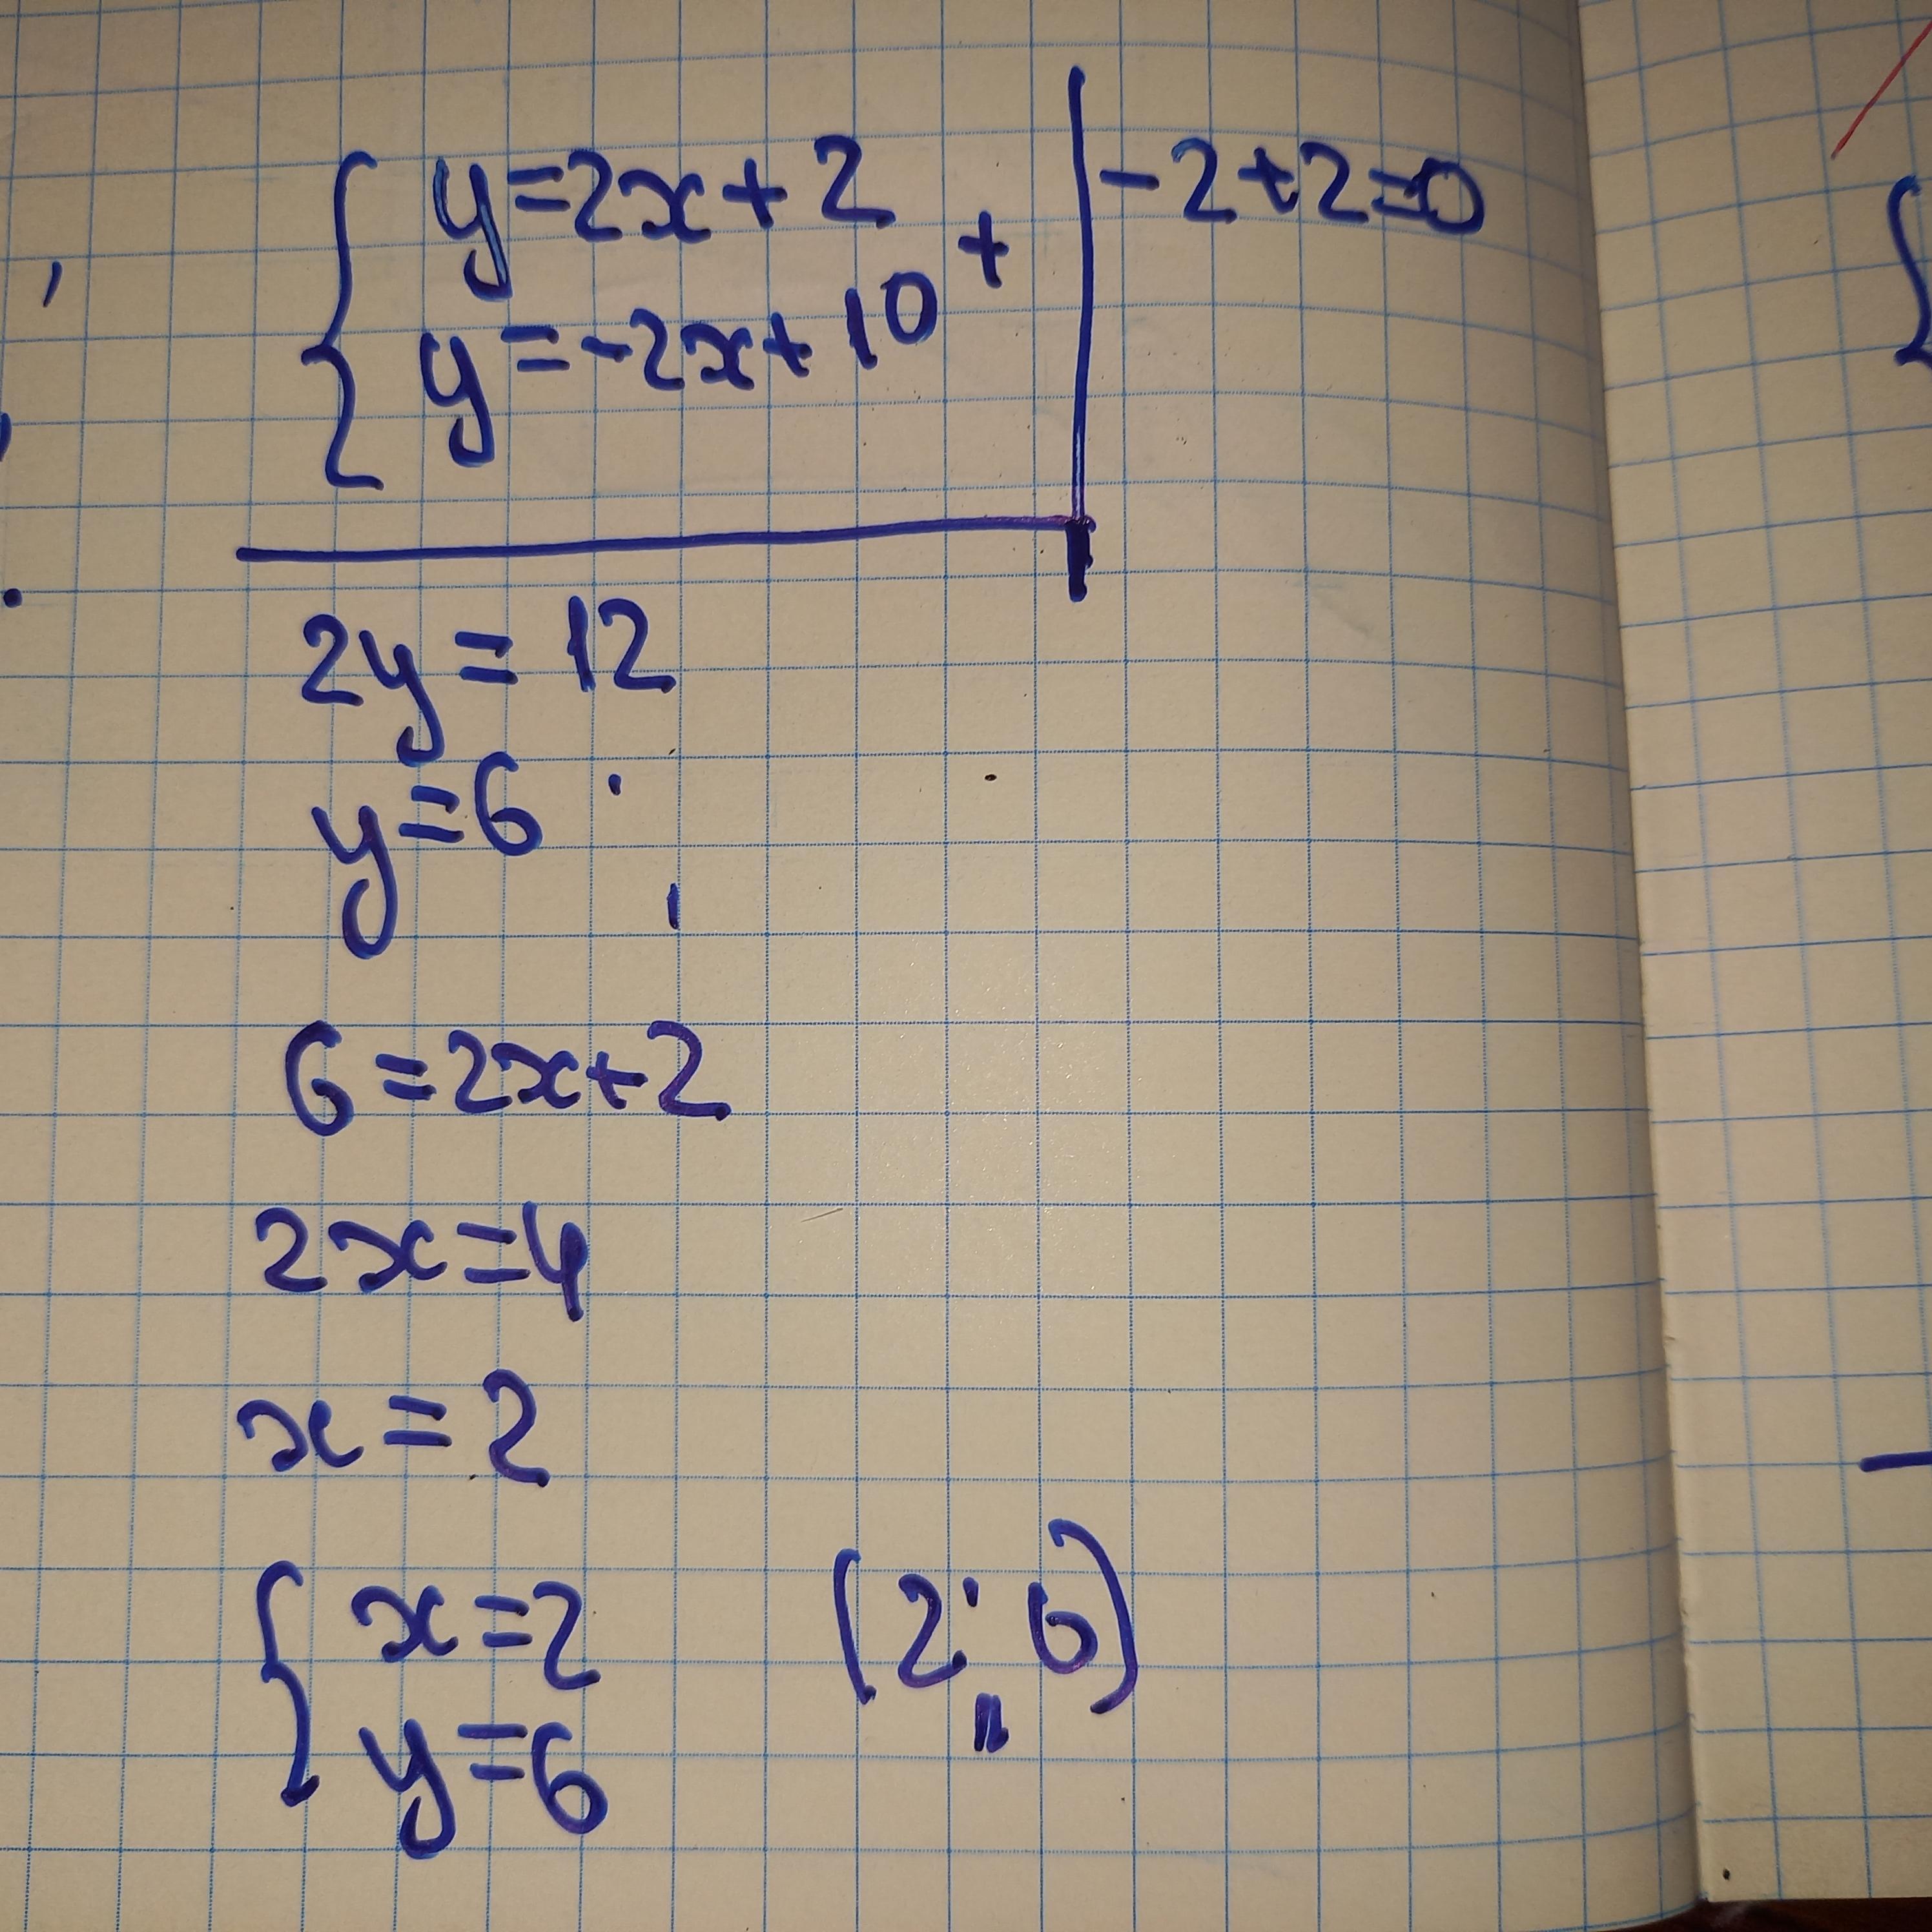 y=2x+2
y=-2x+10 +
-2+2=0
2y=12
y=6
6=2x+2
2x=4
x=2
x=2
y=6
(2; 6)